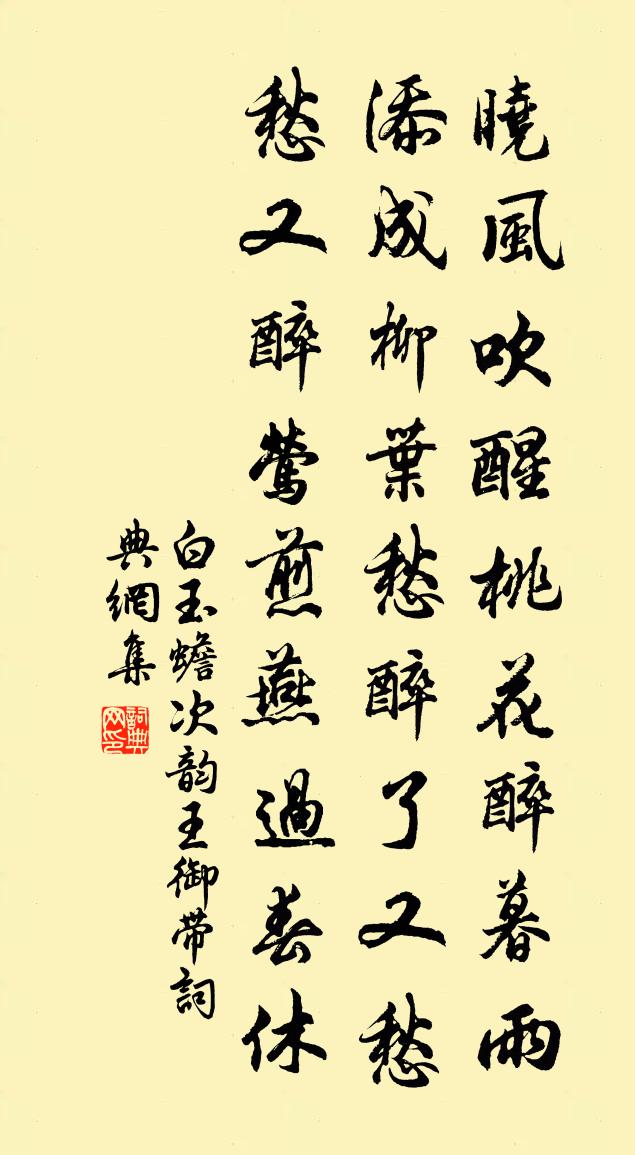 曉風吹醒桃花醉暮雨
添成柳葉愁醉了又愁
愁又醉鶯煎燕過春休
白玉蟾次韵王御带詞
典網集
詞典网印